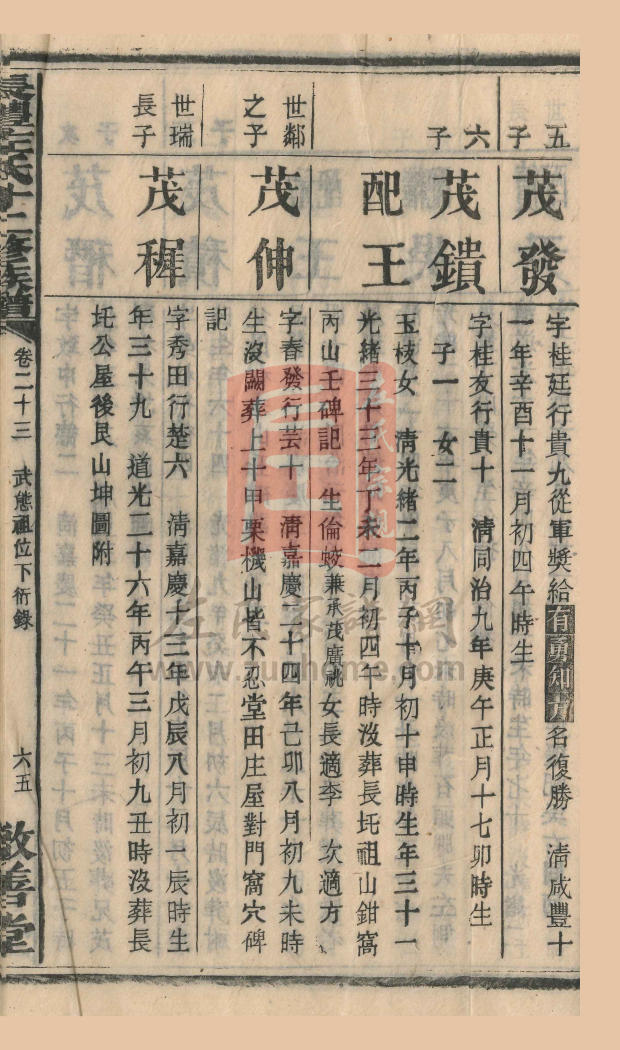 五子
茂發
字桂廷行貴九從軍獎給有勇知方名復勝 清咸豐十
一年辛酉十一月初四午時生
六子
茂鐀
字桂友行貴十 清同治九年庚午正月十七卯時生
子一 女二
配王
玉枝女 淸光緒二年丙子十月初十申時生年三十一
光緒三十三年丁未二月初四午時没葬長圫祖山鉗窩
丙山壬碑記 生倫蛟兼承茂廣祧女長適李 次適方
世鄰之子
茂伸
字春發行芸十 淸嘉慶二十四年己卯八月初九未時
生没闕葬上十甲栗機山皆不忍堂田庄屋對門窩穴碑
記
世瑞長子
茂穉
字秀田行楚六 淸嘉慶十三年戊辰八月初一辰時生
年三十九 道光二十六年丙午三月初九丑時没葬長
圫公屋後艮山坤圖附
左氏十二修族譜
卷二十三 武態祖位下衍錄
六五
敦善堂
左氏家譜網
www.zupuhome.com